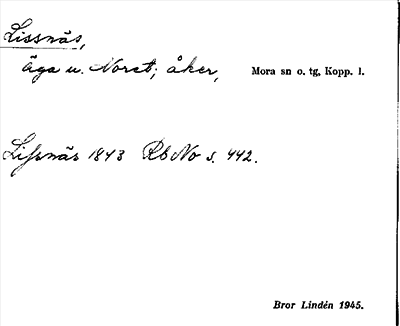 Lissnäs,
äga u. Noret; åker, Mora sn o. tg, Kopp. l.
Lissnäs 1843 Rb No s. 442.
Bror Lindén 1945.